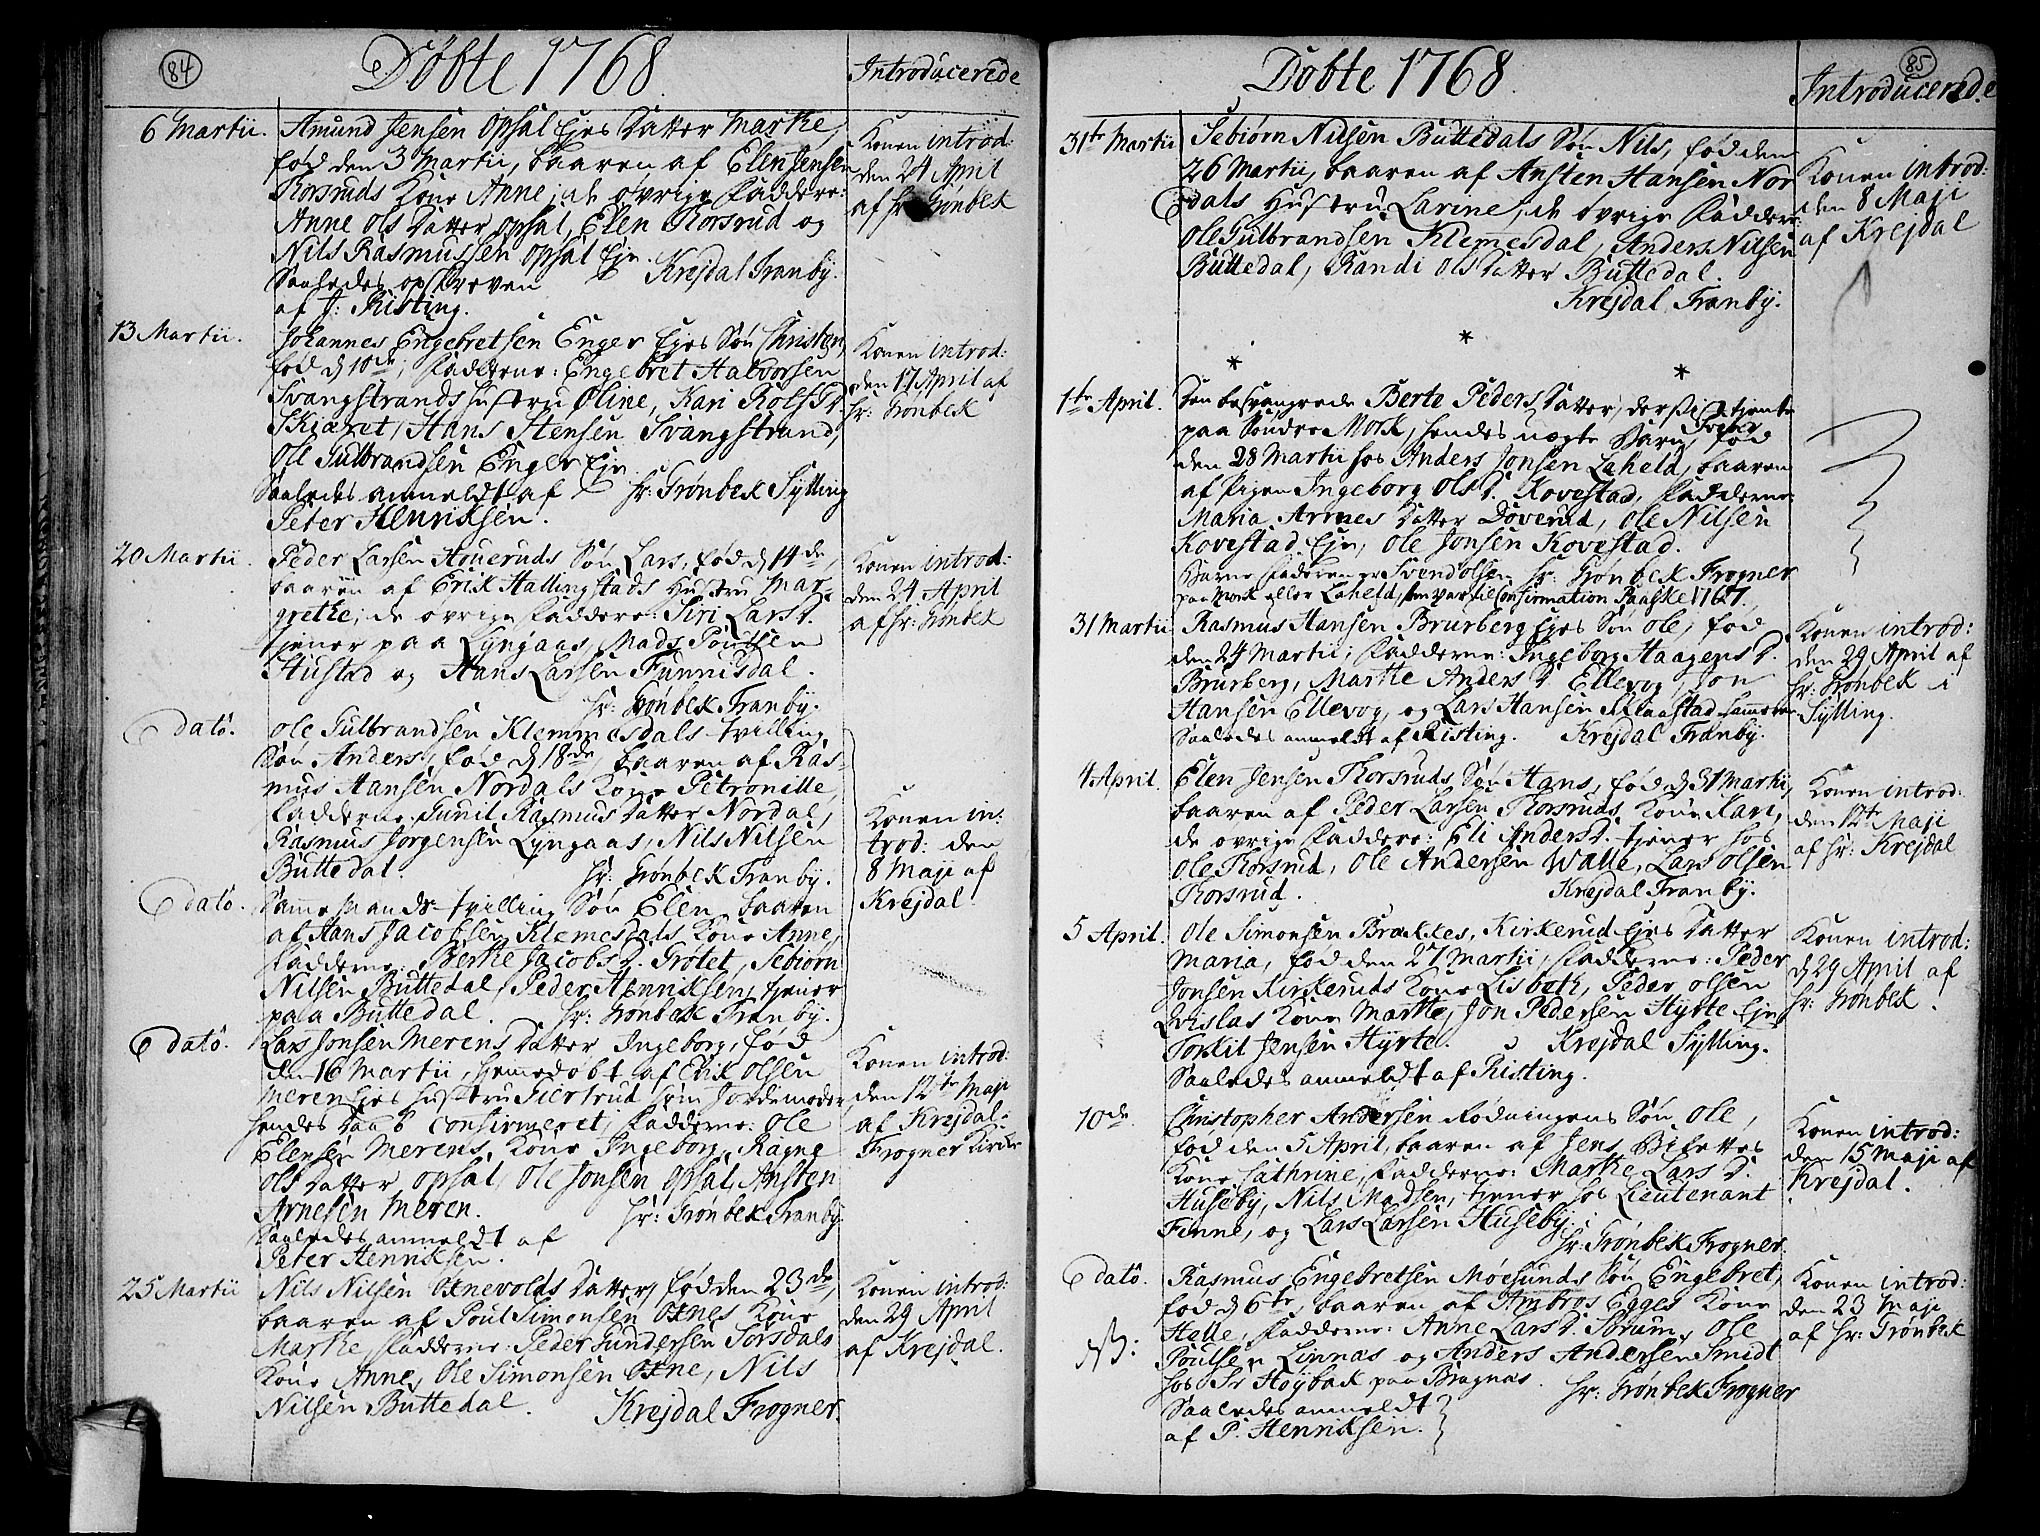 84
Døbte 1768.
Introducerede
6 Martii. Amund Jensen Opsal Ejes Datter Marthe,
fød den 3 Martii, baaren af Elen Jensen
Thorsruds Kone Anne; de øvrige Faddere:
Anne Ols Datter Opsal, Elen Thorsrud og
Nils Rasmussen Opsal Eje.
Saaledes opskreven Krejdal Tranby.
af J: Risting.
Konen introd:
den 24 April
af Hr: Grønbek
13 Martii. Johannes Engebretsen Enger Ejes Søn Christen,
fød d 10de; Fadderne: Engebret Halvorsen
Svangstrands Hustru Oline, Kari Rolfs D.
Skiæret, Hans Stensen Svangstrand,
Ole Gulbrandsen Enger Eje.
Saaledes anmeldt af Hr: Grønbek Sylling
Peter Henriksen.
Konen introd:
den 17 April af
Hr: Grønbek
20 Martii. Peder Larsen Houeruds Søn Lars, fød d 14de,
baaren af Erik Hallingstads Hustru Mar-
grethe; de øvrige Faddere: Siri Lars D.
tjener paa Lyngaas, Mads Poulsen
Hustad og Hans Larsen Funnisdal.
Hr: Grønbek Tranby.
Konen introd:
den 24 April
af Hr: Grønbek
E dato. Ole Gulbrandsen Klemmesdals tvilling
Søn Anders, fød d 18de, baaren af Ras-
mus Hansen Nordals Kone Petronille,
Fadderne: Gunil Rasmus Datter Nordal,
Rasmus Jørgensen Lyngaas, Nils Nilsen
Buttedal. Hr: Grønbek Tranby.
Konen in:
trod: den
8 Maji af
Krejdal.
E dato. Samme Mands tvilling Søn Elen, baaren
af Hans Jacobsen Klemesdals Kone Anne,
Fadderne: Berthe Jacobs D. Grøtet, Sebiørn
Nilsen Buttedal, Peder Henriksen, tjener
paa Buttedal. Hr: Grønbek Tranby.
E dato. Lars Jonsen Merens Datter Ingeborg, fød
den 16 Martii, hjemedøbt af Erik Olsen
Meren Ejes Hustru Giertrud som Jordemoder,
hendes Daab confirmeret; Fadderne: Ole
Elensen Merens Kone Ingeborg, Ragne
Ols Datter Opsal, Ole Jonsen Opsal, Ansten
Arnesen Meren. Hr: Grønbek Tranby
Saaledes anmeldt af
Peter Henriksen.
Konen introd:
den 12te Maji
af Krejdal i
Frogner Kirke
25 Martii Nils Nilsen Oxnevolds Datter, fød den 23de,
baaren af Poul Simonsen Oxnes Kone
Marthe, Fadderne: Peder Gundersen Sørsdals
Kone Anne, Ole Simonsen Oxne, Nils
Nilsen Buttedal. Krejdal Frogner.
Konen introd:
den 29 April
af Krejdal.
85
Døbte 1768.
Introducerede.
31te Martii Sebiørn Nilsen Buttedals Søn Nils, fød den
26 Martii, baaren af Ansten Hansen Nor
dals Hustru Larine, de øvrige Faddere:
Ole Gulbrandsen Klemesdal, Anders Nilsen
Buttedal, Randi Ols Datter Buttedal.
Krejdal Tranby.
Konen introd:
den 8 Maji
af Krejdal
* * *
1te April. Den besvangrede Berte Peders Datter, der sidst tjente
paa Søndre Mork, hendes uægte Barn, fød
den 28 Martii hos Anders Jonsen Laheld, baaren
af Pigen Ingeborg Ols D. Kovestad, Fadderne:
Maria Arnes Datter Døverud, Ole Nilsen
Kovestad Eje, Ole Jonsen Kovestad.
Barne Faderen er Svend Olsen Hr: Grønbek Frogner
paa Mork eller Laheld, som var til Confirmation Paaske 1767.
31 Martii Rasmus Hansen Brurberg Ejes Søn Ole, fød
den 24 Martii; Fadderne: Ingeborg Haagens D.
Brurberg, Marthe Anders D. Ellevog, Jon
Hansen Ellevog, og Lars Hansen Flaastad
Saaledes anmeldt af Risting. Krejdal Tranby.
Konen introd:
den 29 April af
Hr: Grønbek i
Sylling.
4 April. Elen Jensen Thorsruds Søn Hans, fød d 31 Martii,
baaren af Peder Larsen Thorsruds Kone Kari,
de øvrige Faddere: Eli Anders D. tjener hos
Ole Thorsrud, Ole Andersen Walle, Lars Olsen
Thorsrud. Krejdal Tranby.
Konen introd:
den 12te Maji
af Hr: Krejdal
5 April. Ole Simonsen Brækkes, Kirkerud Ejes Datter
Maria, fød den 27 Martii, Fadderne: Peder
Jonsen Kirkeruds Kone Lisbeth, Peder Olsen
Qvislas Kone Marthe, Jon Pedersen Hyrte Eje
Torkil Jensen Hyrte. Krejdal Sylling.
Saaledes anmeldt af Risting.
Konen introd:
d 29 April af
Hr: Grønbek.
10de. Christopher Andersen Rødningens Søn Ole,
fød den 5 April, baaren af Jens Bifattes
Kone Cathrine, Fadderne: Marthe Lars D.
Huseby, Nils Madsen, tjener hos Lieutenant
Finne, og Lars Larsen Huseby.
Hr: Grønbek Frogner.
Konen introd:
den 15 Maji af
Krejdal.
E dato. Rasmus Engebretsen Møesunds Søn Engebret,
fød d 6te, baaren af Ambros Egges Kone
Helle, Fadderne: Anne Lars D. Sørum, Ole
NB: Poulsen Linnæs og Anders Andersen Smidt
hos Sr Høybak paa Bragnæs. Hr: Grønbek Frogner
Saaledes anmeldt
af P. Henriksen.
Konen introd:
den 23 Maji
af Hr: Grønbek